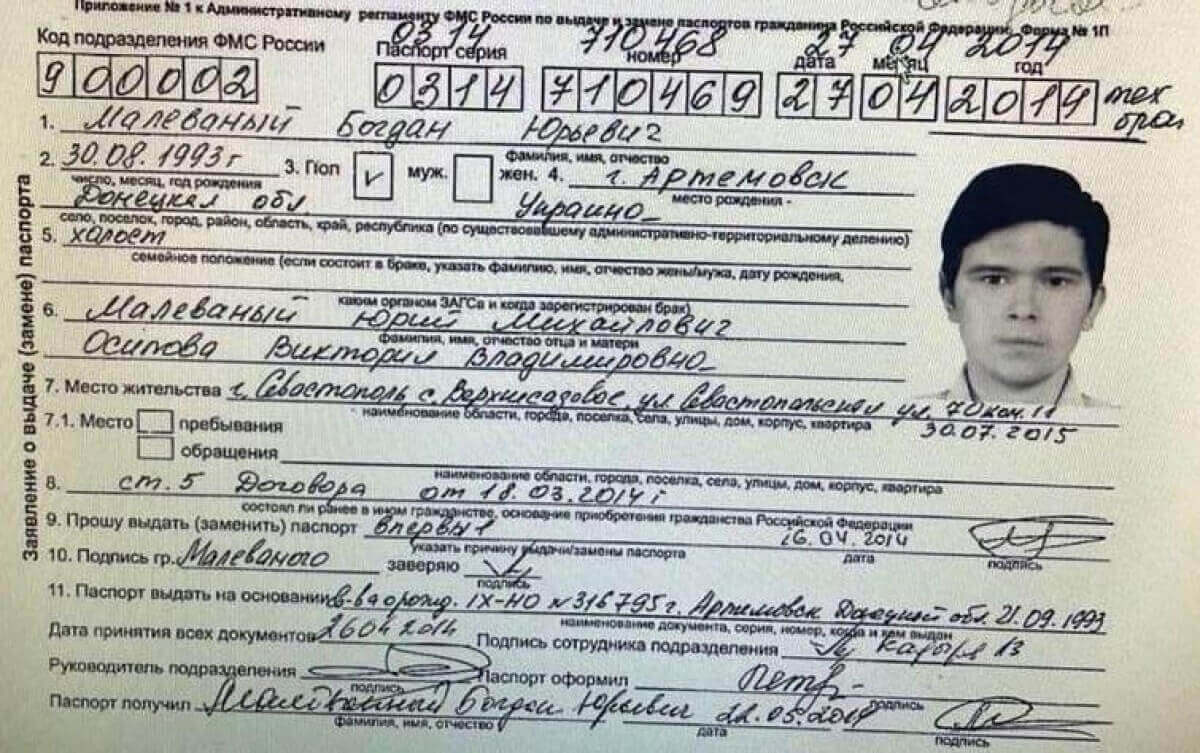 Приложение № 1 к Административному регламенту ФМС России по выдаче и замене паспортов гражданина Российской Федерации. Форма № 1П
Код подразделения ФМС России 0314 710468 27 04 2014
Паспорт серия номер дата месяц год
900002 0314 710469 27 04 2014 тех
брак
1. Малеваный Богдан Юрьевич
фамилия, имя, отчество
2. 30.08.1993г 3. Пол v муж. жен. 4. г. Артемовск
число, месяц, год рождения место рождения -
Донецкая обл Украина
село, поселок, город, район, область, край, республика (по существовавшему административно-территориальному делению)
5. халост
семейное положение (если состоит в браке, указать фамилию, имя, отчество жены/мужа, дату рождения,
каким органом ЗАГСа и когда зарегистрирован брак)
6. Малеваный Юрий Михайлович
фамилия, имя, отчество отца и матери
Осипова Виктория Владимировна
7. Место жительства г. Севастополь с. Верхнесадовое, ул Севастопольская ул. 70 ком. 11
наименование области, города, поселка, села, улицы, дом, корпус, квартира
30.07.2015
7.1. Место пребывания
обращения
наименование области, города, поселка, села, улицы, дом, корпус, квартира
8. ст. 5 Договора от 18.03.2014г
состоял ли ранее в ином гражданстве, основание приобретения гражданства Российской Федерации
9. Прошу выдать (заменить) паспорт впервые 26.04.2014
указать причину выдачи/замены паспорта дата подпись
10. Подпись гр. Малеваного заверяю
подпись
11. Паспорт выдать на основании в-ва о рожд. IX-НО №316795 г. Артемовск Донецкой обл. 21.09.1993
наименование документа, серия, номер, когда и кем выдан
Дата принятия всех документов 26042014 Подпись сотрудника подразделения
Руководитель подразделения Паспорт оформил
подпись подпись
Паспорт получил Малеванный Богдан Юрьевич 22.05.2014
фамилия, имя, отчество дата подпись
Заявление о выдаче (замене) паспорта